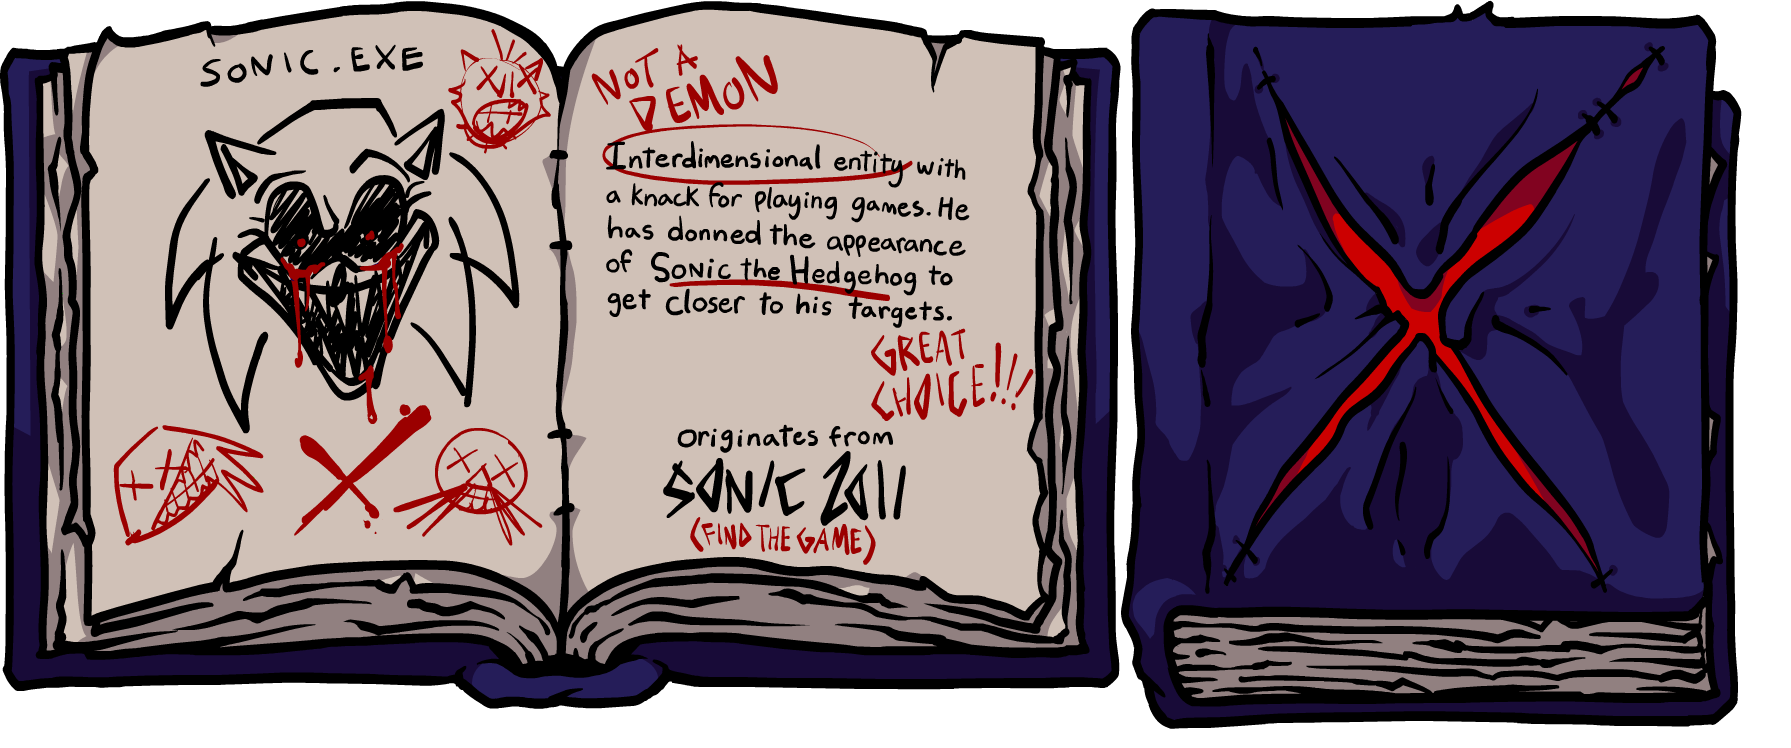 SONIC.EXE
NOT A
DEMON
Interdimensional entity with
a knack for playing games. He
has donned the appearance
of Sonic the Hedgehog to
get closer to his targets.
GREAT
CHOICE!!!
Originates from
SONIC 2011
(FIND THE GAME)